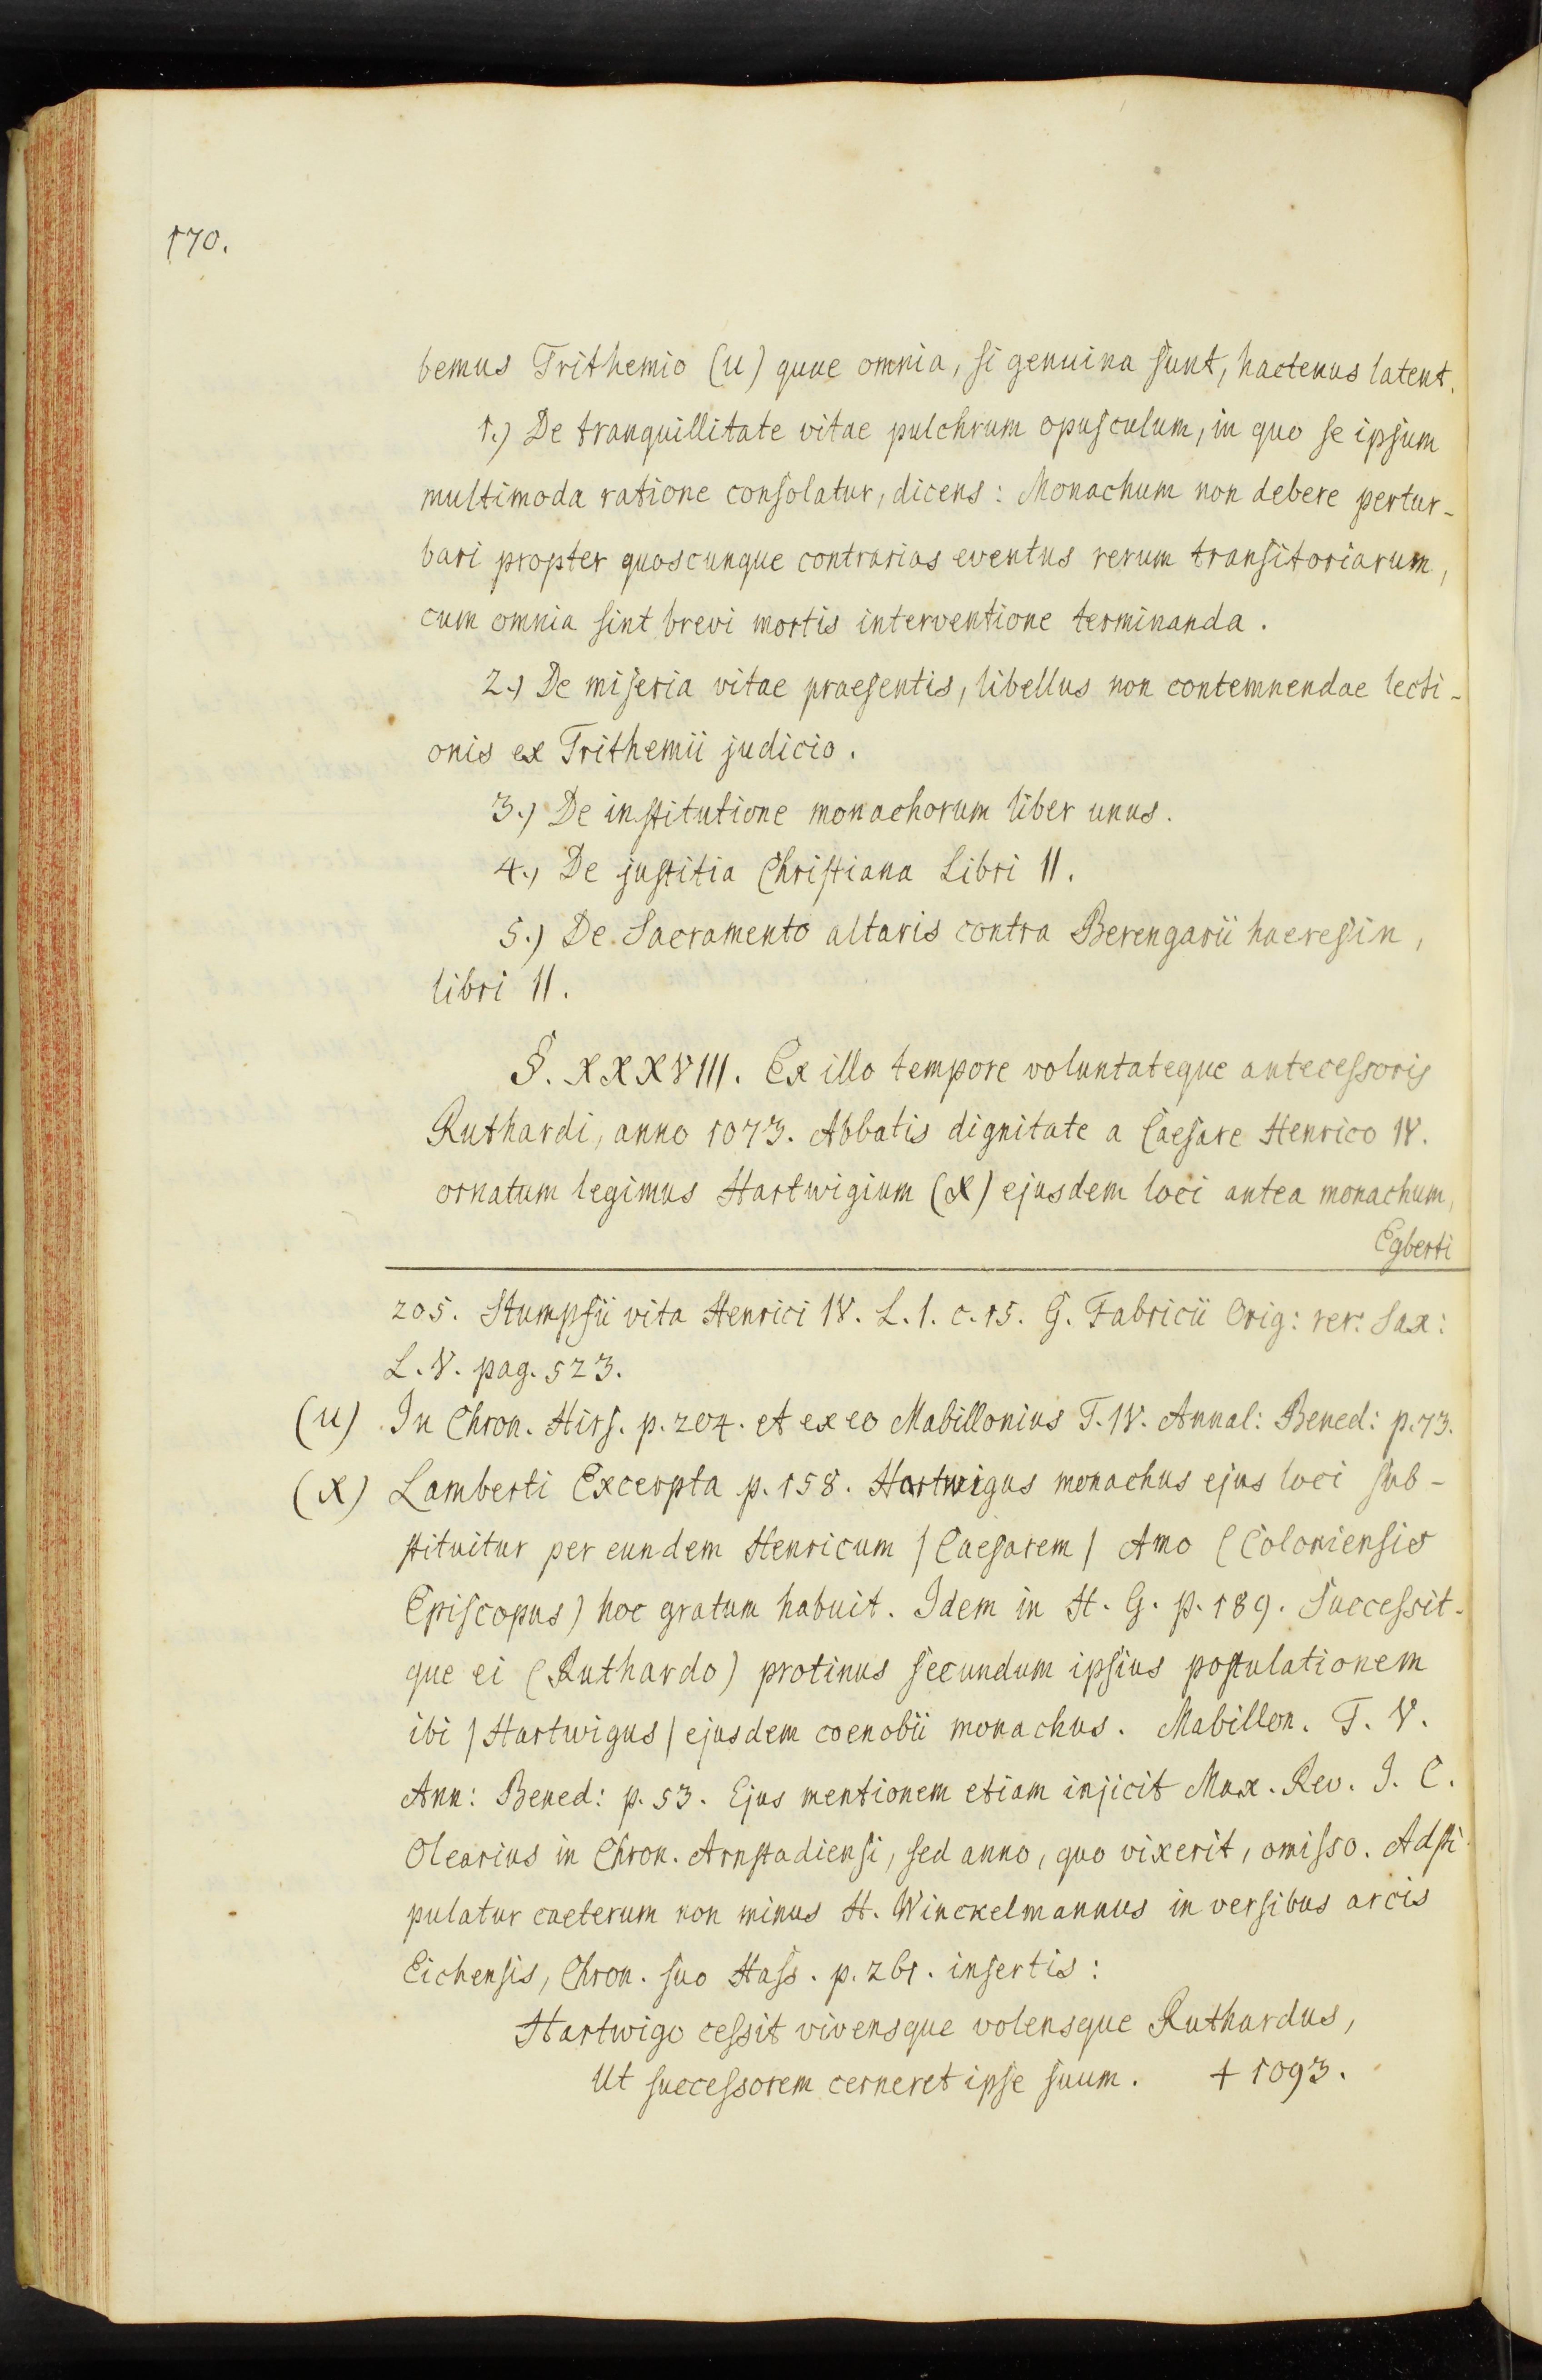 170.
bemus Trithemio (u) quae omnia, si genuina sunt, hactenus latent.
1.) De tranquillitate vitae pulchrum opusculum, in quo se ipsum
multimoda ratione consolatur, dicens: Monachum non debere pertur-
bari propter quoscunque contrarios eventus rerum transitoriarum,
cum omnia sint brevi mortis interventione terminanda.
2.) De miseria vitae praesentis, libellus non contemnendae lecti-
onis ex Trithemii judicio.
3.) De institutione monachorum liber unus.
4.) De justitia Christiana Libri II.
5.) De Sacramento altaris contra Berengarii haeresin,
libri II.
§. XXXVIII. Ex illo tempore voluntateque antecessoris
Ruthardi, anno 1073. Abbatis dignitate a Caesare Henrico IV.
ornatum legimus Hartwigium (x) ejusdem loci antea monachum,
Egberti
205. Stumpfii vita Henrici IV. L. I. c. 15. G. Fabricii Orig: rer: Sax:
L. V. pag. 523.
(u) In Chron. Hirs. p. 204. et ex eo Mabillonius T. IV. Annal: Bened: p. 73.
(x) Lamberti Excerpta p. 158. Hartwigus monachus ejus loci sub-
stituitur per eundem Henricum /Caesarem/ Anno (Coloniensis
Episcopus) hoc gratum habuit. Idem in H. G. p. 189. Successit-
que ei (Ruthardo) protinus secundum ipsius postulationem
ibi /Hartwigus/ ejusdem coenobii monachus. Mabillon. T. V.
Ann: Bened: p. 53. Ejus mentionem etiam injicit Max. Rev. I. C.
Olearius in Chron. Arnstadiensi, sed anno, quo vixerit, omisso. Adsti
pulatur caeterum non minus H. Winckelmannus in versibus arcis
Eichensis, Chron. suo Hass. p. 261. insertis:
Hartwigo cessit vivensque volensque Ruthardus,
Ut successorem cerneret ipse suum. † 1093.